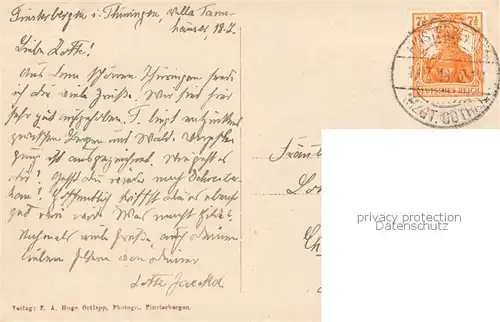 Finsterbergen i. Thüringen, Villa Tann-
häuser, 18.7.
Liebe Lotte!
Aus dem schönen Thüringen sende
ich dir viele Grüße. Wir sind hier
sehr gut aufgehoben. F. liegt entzückend
zwischen Bergen und Wald. Verpfle-
gung ist ausgezeichnet. Wie geht es
dir? Gehst du wieder nach Schreiber-
hau? Hoffentlich trifft dieses
gut Was macht
Nochmals viele Grüße, auch deinen
lieben Eltern von deiner
Lotte
Verlag: E. A. Hugo Ortlepp, Photogr., Finsterbergen.
7½ 7½
DEUTSCHES REICH
FINSTERBERGEN
(HZGT. GOTHA)
Fräul
privacy protection
Datenschutz